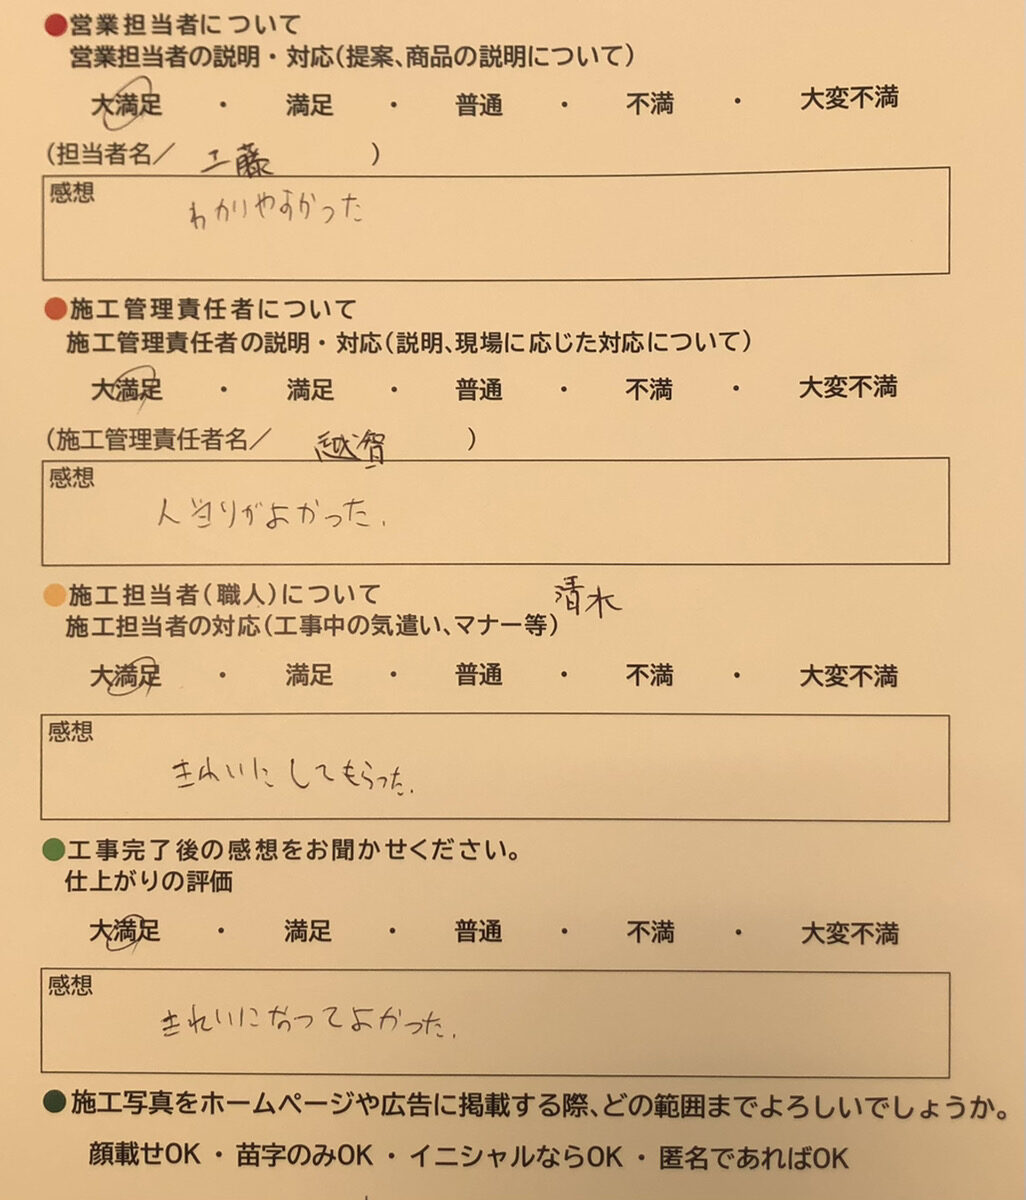 ●営業担当者について
営業担当者の説明・対応(提案、商品の説明について)
大満足 ・ 満足 ・ 普通 ・ 不満 ・ 大変不満
(担当者名／ 工藤 )
感想
わかりやすかった
●施工管理責任者について
施工管理責任者の説明・対応(説明、現場に応じた対応について)
大満足 ・ 満足 ・ 普通 ・ 不満 ・ 大変不満
(施工管理責任者名／ 越智 )
感想
人当りがよかった.
●施工担当者(職人)について 清水
施工担当者の対応(工事中の気遣い、マナー等)
大満足 ・ 満足 ・ 普通 ・ 不満 ・ 大変不満
感想
きれいにしてもらった.
●工事完了後の感想をお聞かせください。
仕上がりの評価
大満足 ・ 満足 ・ 普通 ・ 不満 ・ 大変不満
感想
きれいになってよかった.
●施工写真をホームページや広告に掲載する際、どの範囲までよろしいでしょうか。
顔載せOK・苗字のみOK・イニシャルならOK・匿名であればOK